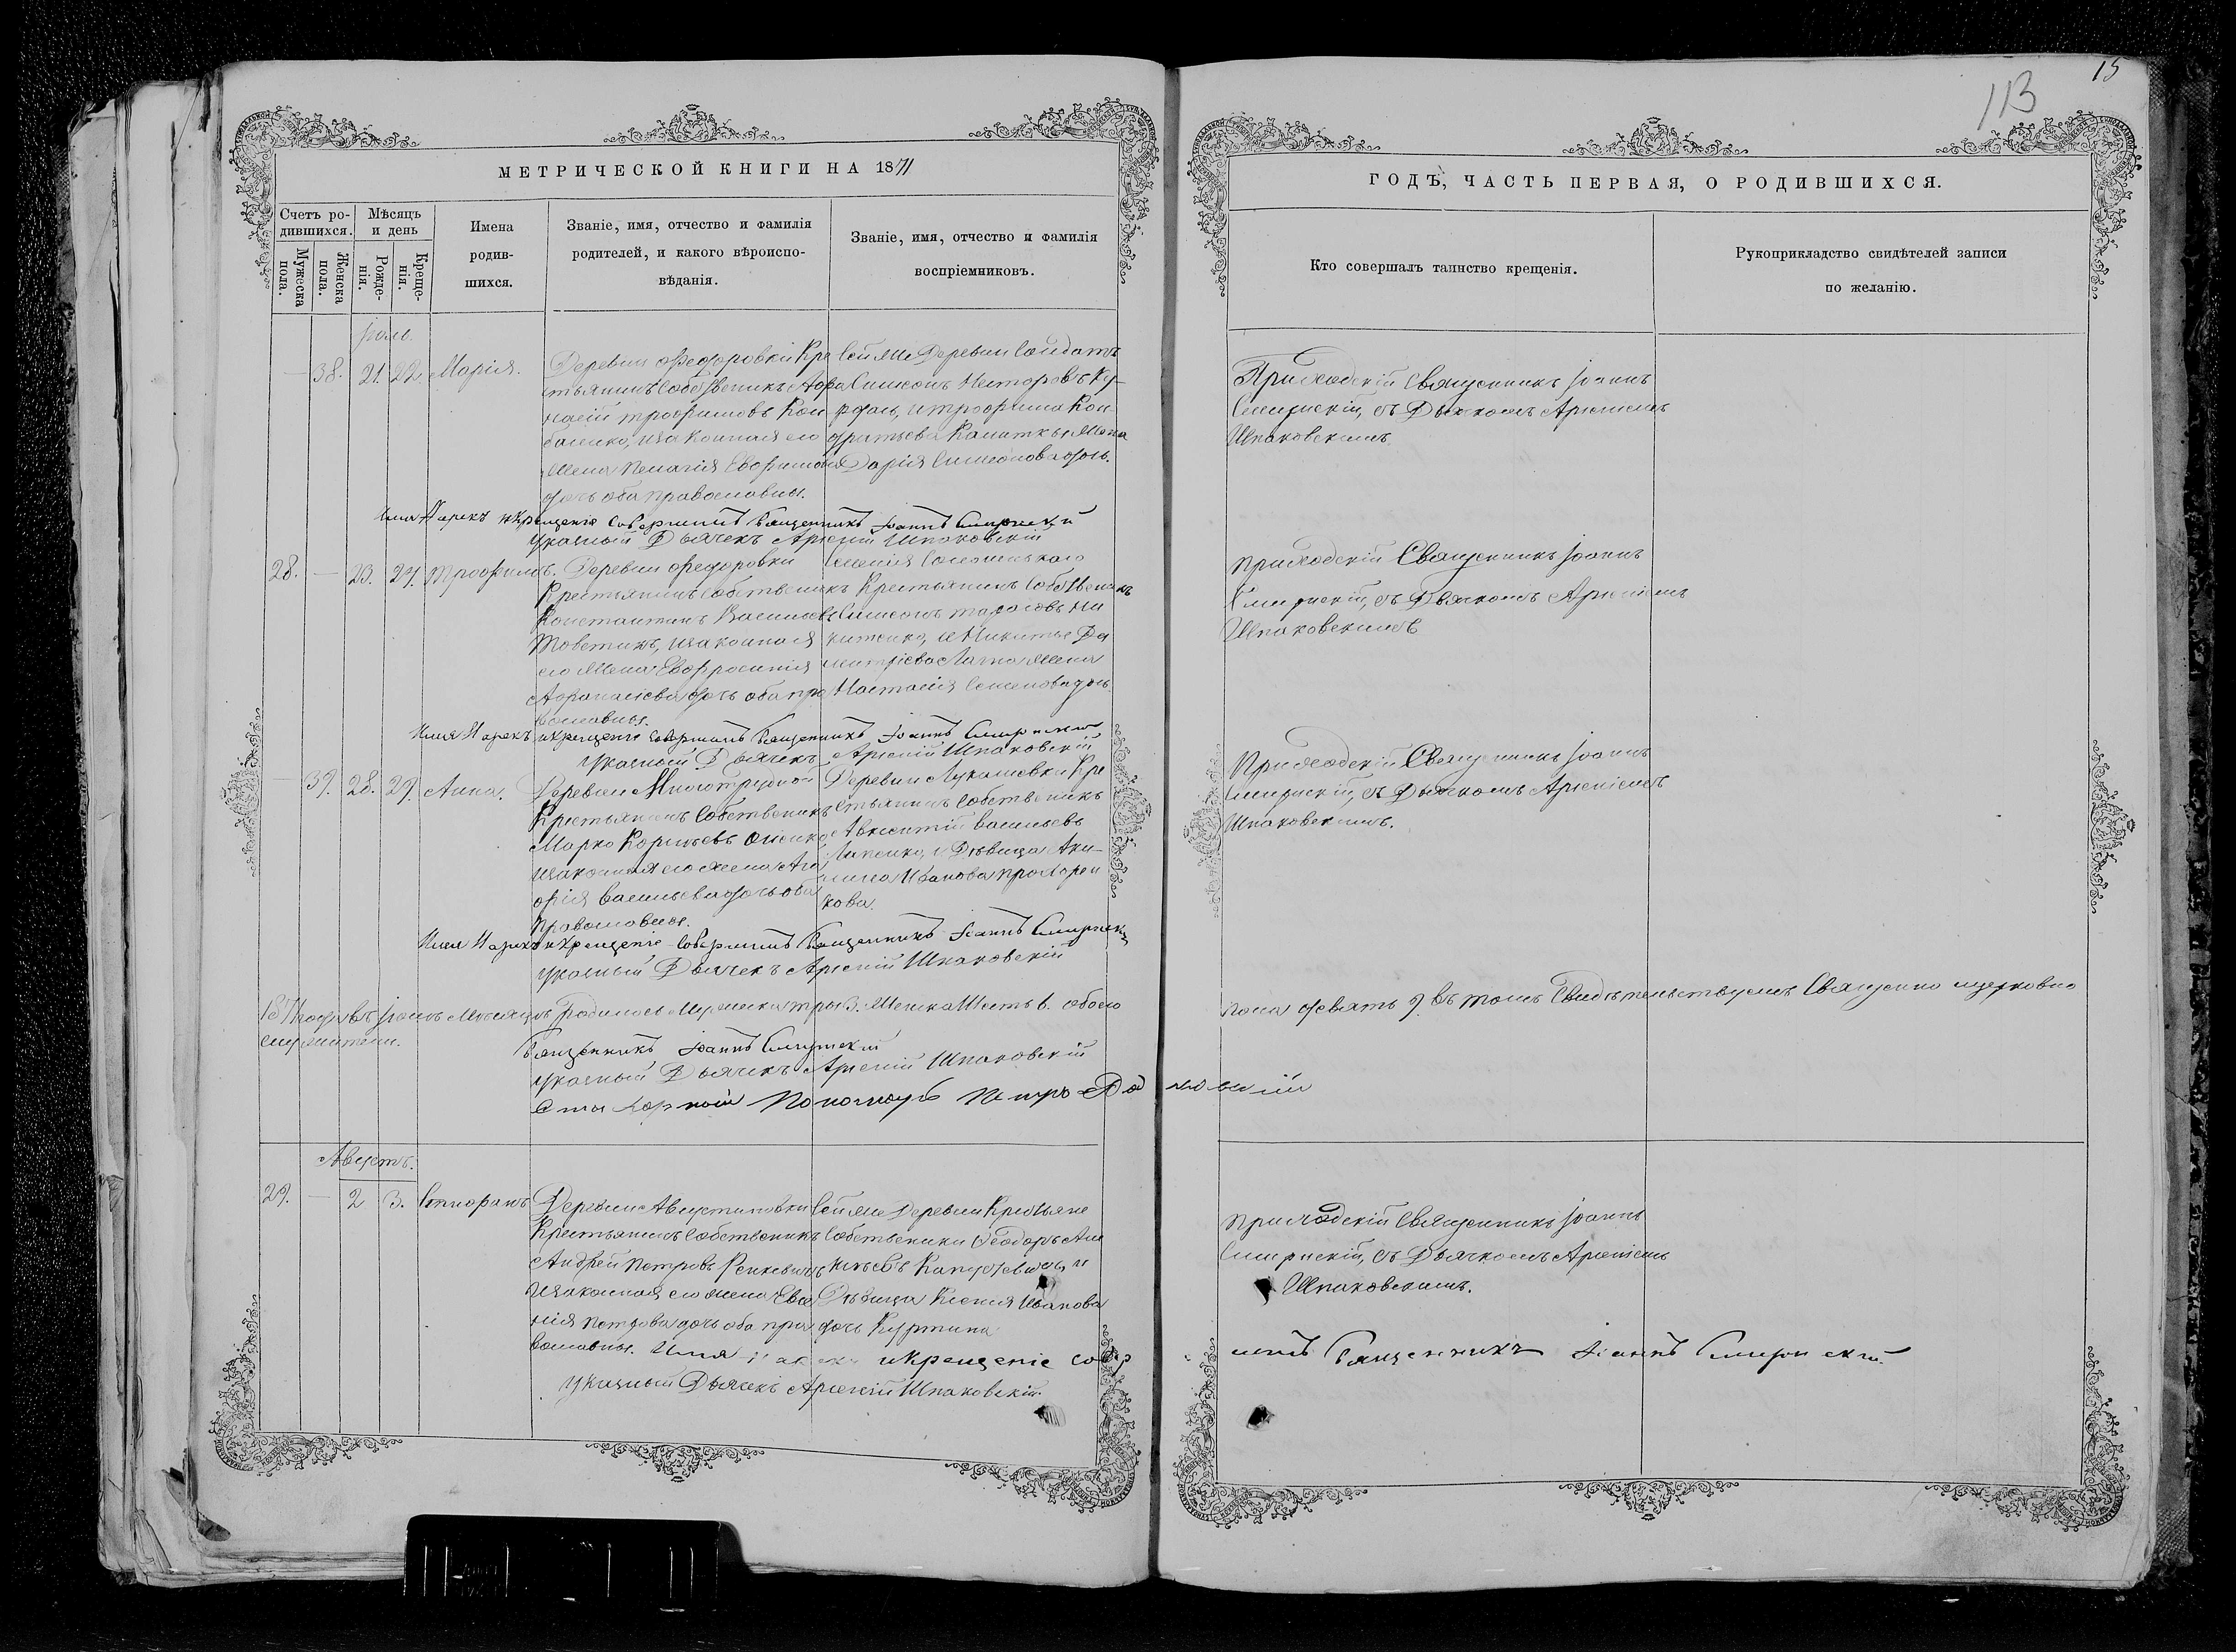 113
15
МЕТРИЧЕСКОЙ КНИГИ НА 1871
ГОДЪ, ЧАСТЬ ПЕРВАЯ, О РОДИВШИХСЯ.
Счетъ ро-
дившихся.
Мужеска
пола.
Женска
пола.
Мѣсяцъ
и день
Рожде-
нія.
Креще-
нія.
Имена
родив-
шихся.
Званіе, имя, отчество и фамилія
родителей, и какого вѣроиспо-
вѣданія.
Званіе, имя, отчество и фамилія
воспріемниковъ.
Кто совершалъ таинство крещенія.
Рукоприкладство свидѣтелей записи
по желанію.
38. 21. 22. Марія.
Деревни Федоровки Кре
стьянинъ Собственикъ Афа
насій Трофимовъ Кон
законная его
жена Пелагія Евфимова
дочь оба православны.
Сей же Деревни Солдатъ
Симеонъ Несторовъ
и Трофима Кон
дратьева жена
Дарія Симеонова дочь.
Приходскій Священникъ Іоаннъ
Смирнскій, съ Дьячкомъ Арсеніемъ
Шпаковскимъ.
Имя Нарекъ и Крещеніе Совершилъ Священникъ Іоаннъ Смирнскій
Указный Дьячекъ Арсеній Шпаковскій
28. — 23. 24. Трофимъ.
Деревни Федоровки
Крестьянинъ Собственикъ
Константинъ Васильевъ
Товстикъ, законная
его жена Евфросинія
Афанасіева дочь оба пра
вославны.
Крестьянинъ Собственикъ
Симеонъ Тарасовъ Ни
китенко, и Никиты Ди
митріева жена
Настасія Семенова дочь.
Приходскій Священникъ Іоаннъ
Смирнскій, съ Дьячкомъ Арсеніемъ
Шпаковскимъ
Имя Нарекъ и Крещеніе Совершилъ Священникъ Іоаннъ Смирнскій
Указный Дьячекъ Арсеній Шпаковскій
— 39. 28. 29. Анна.
Деревни Многотрудной
Крестьянинъ Собственикъ
Марко Корнѣевъ
законная его жена Ага
фія Васильева дочь оба
православны.
Деревни Лукашевки Кре
стьянинъ Собственикъ
Авксентій Васильевъ
и Дѣвица Аки-
лина Иванова Прохорен
кова.
Приходскій Священникъ Іоаннъ
Смирнскій, съ Дьячкомъ Арсеніемъ
Шпаковскимъ.
Имя Нарекъ и Крещеніе Совершилъ Священникъ Іоаннъ Смирнскій
Указный Дьячекъ Арсеній Шпаковскій
1871 года въ Іюль Мѣсяцъ родилось Мужеска три 3. Женска Шесть 6. обоего пола девять 9. Въ томъ Свидѣтельствуемъ Священно церковно
служители.
Священникъ Іоаннъ Смирнскій
Указный Дьячекъ Арсеній Шпаковскій
Пономарь Петръ
Августъ.
29. — 2 3. Стефанъ
Деревни Августиновки
Крестьянинъ Собственикъ
Андрей Петровъ Ренкевичъ
Законная его жена Евге
нія Петрова дочь оба пра
вославны.
Сей же Деревни Крестьяне
Собственики Ѳеодоръ Але
ксѣевъ и
Дѣвица Ксенія Иванова
дочь Куртина
Приходскій Священникъ Іоаннъ
Смирнскій, съ Дьячкомъ Арсеніемъ
Шпаковскимъ.
Имя нарекъ и крещеніе совер
шилъ Священникъ Іоаннъ Смирнскій
Указный Дьячекъ Арсеній Шпаковскій.